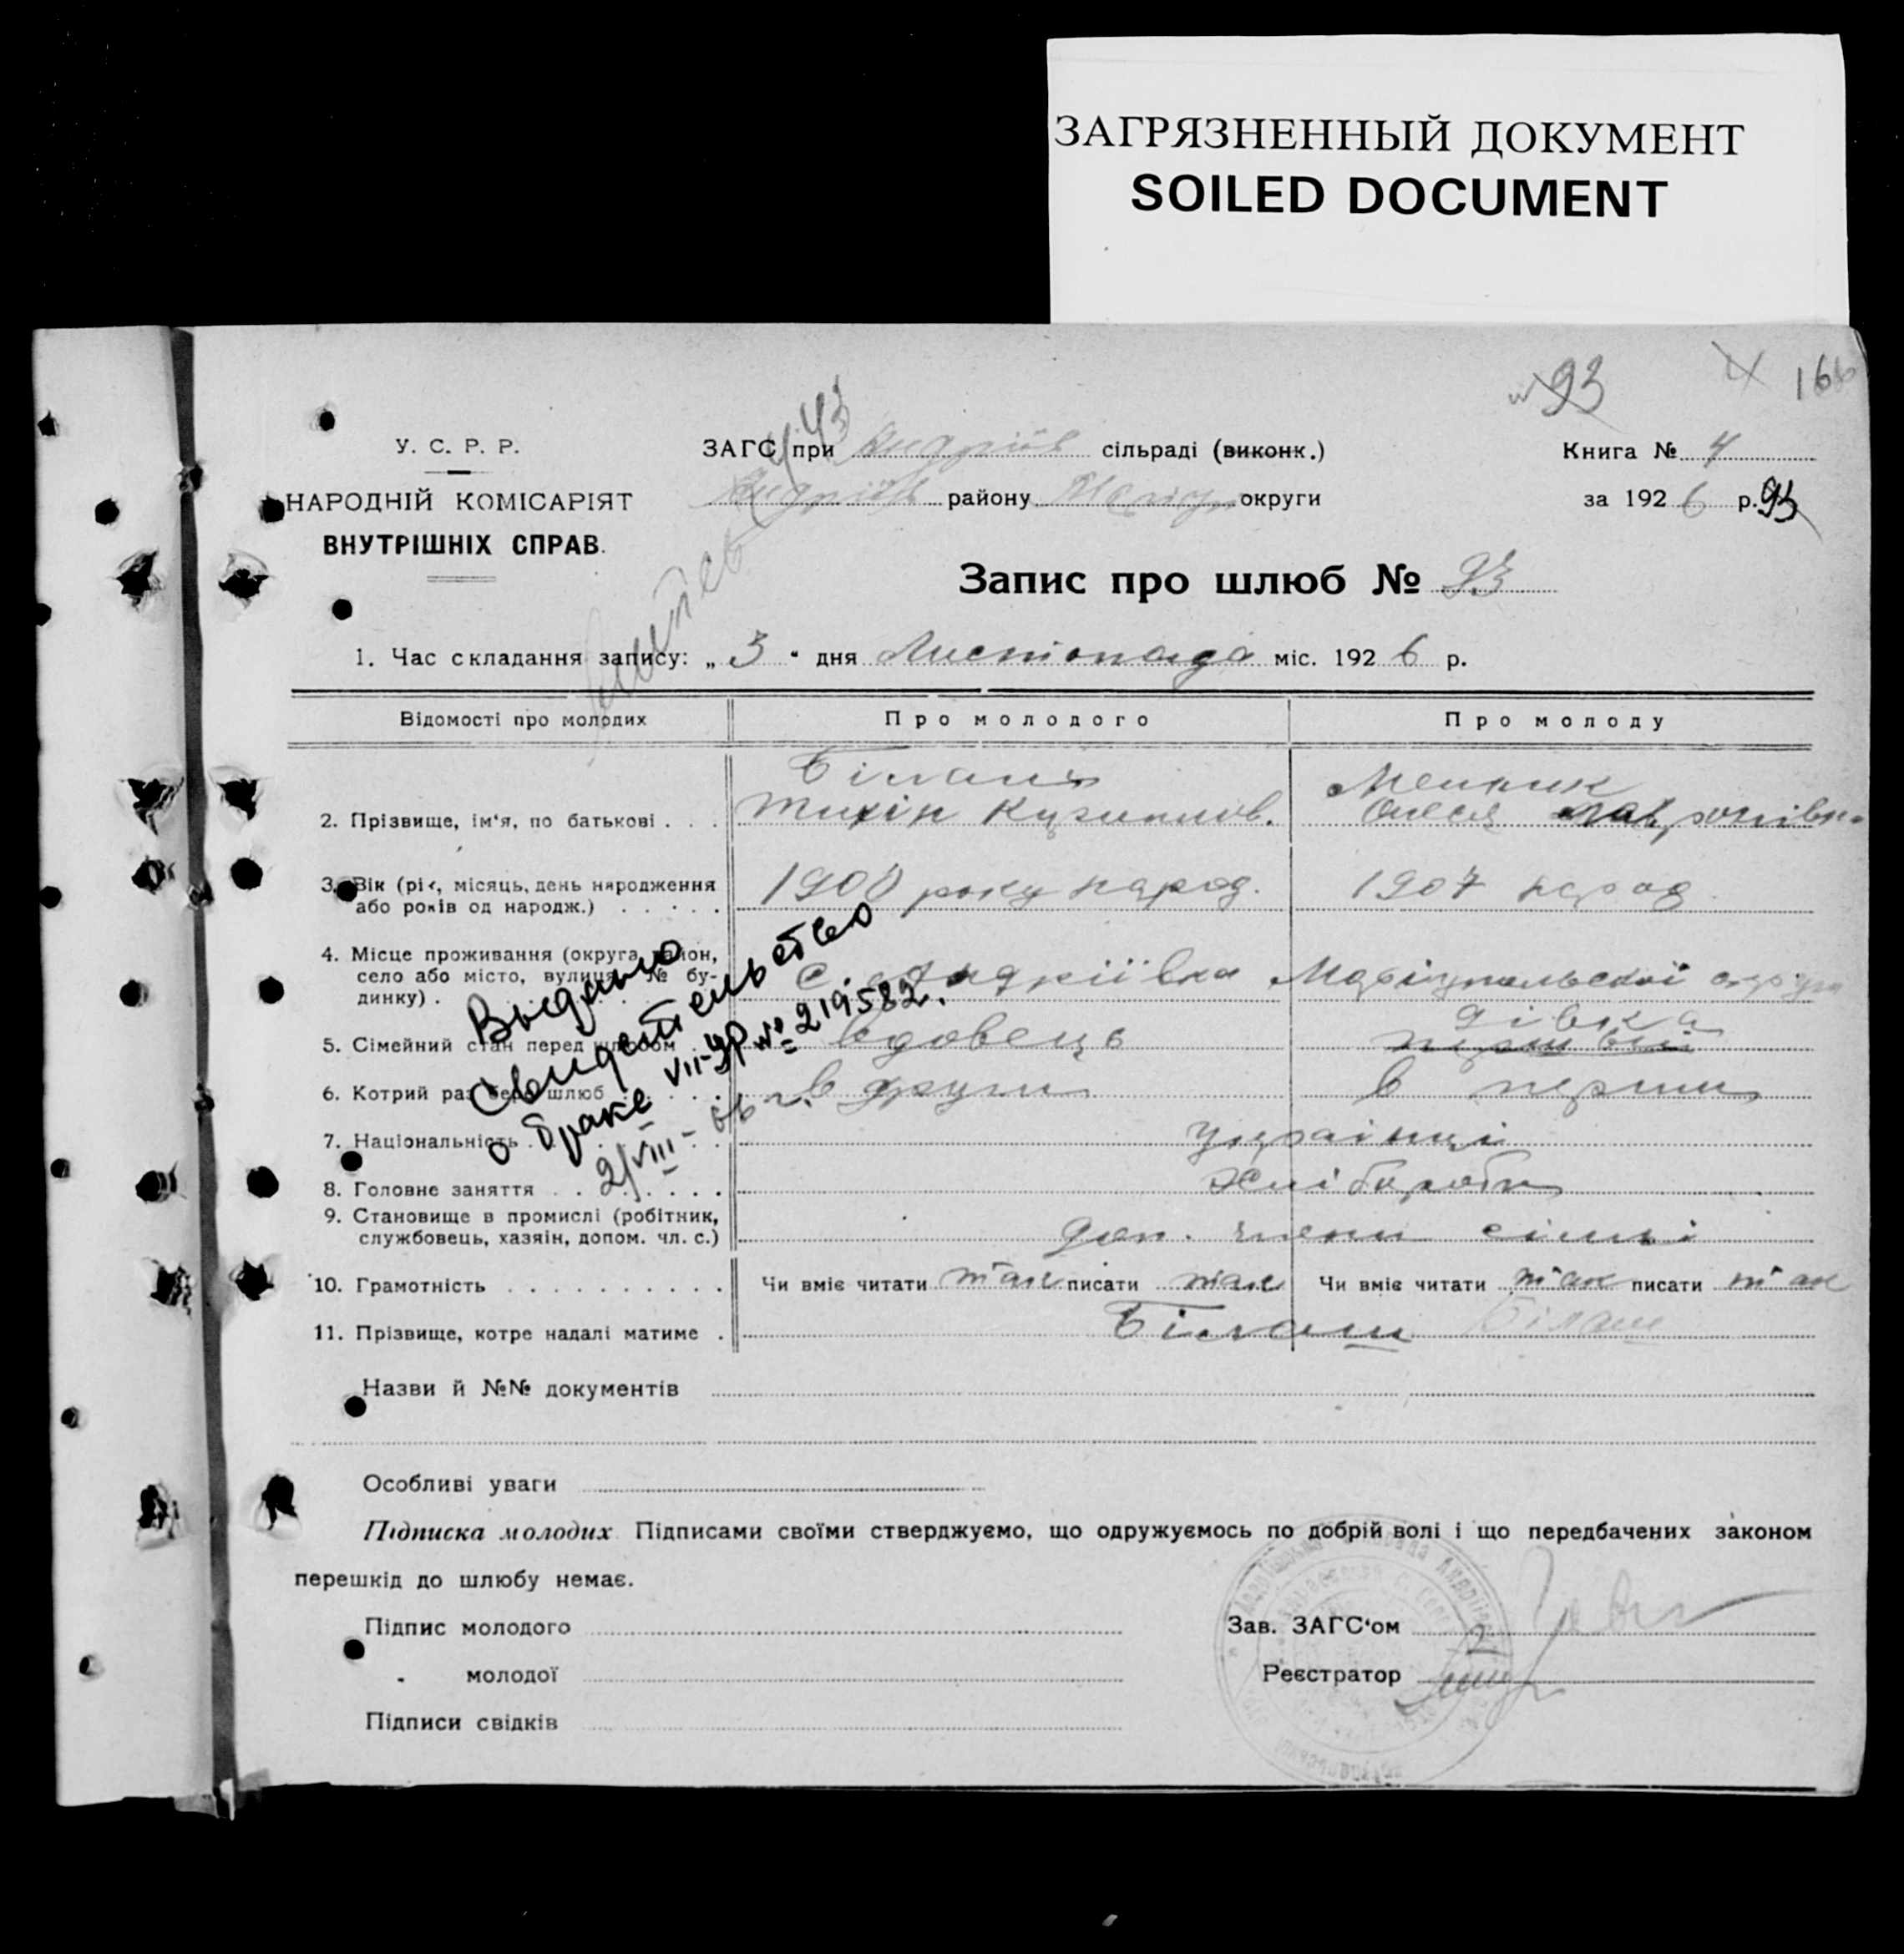 ЗАГРЯЗНЕННЫЙ ДОКУМЕНТ
SOILED DOCUMENT
93 4 166
У. С. Р. Р.
НАРОДНІЙ КОМІСАРІЯТ
ВНУТРІШНІХ СПРАВ.
443
ЗАГС при Андріїв сільраді (виконк.)
Андріїв району Маріуп округи
Книга № 4
за 1926 р. 93
Запис про шлюб № 93
1. Час складання запису: „ 3 " дня Листопада міс. 1926 р.
Відомості про молодих Про молодого Про молоду
2. Прізвище, ім'я, по батькові . . . Білаш Тихін Кузьмов.
Олеся
3. Вік (рік, місяць, день народження або років од народж.) . . . . . 1900 року народ. 1907 народ.
4. Місце проживання (округа, район, село або місто, вулиця, № будинку) . с. Андріївка Маріупольської округи
5. Сімейний стан перед шлюбом . вдовець дівка
6. Котрий раз бере шлюб . . . . . в други в перши
7. Національність . . . українці
8. Головне заняття . . . . . . . Хлібороби
9. Становище в промислі (робітник, службовець, хазяїн, допом. чл. с.) доп. члени сімьї
10. Грамотність . . . . . . . . . . Чи вміє читати так писати так Чи вміє читати так писати так
11. Прізвище, котре надалі матиме . Білаш Білаш
Выдано
свидетельство
о браке VII-УР № 219582.
2/VIII-
Назви й №№ документів
Особливі уваги
Підписка молодих Підписами своїми стверджуємо, що одружуємось по добрій волі і що передбачених законом
перешкід до шлюбу немає.
Підпис молодого
Зав. ЗАГС'ом
" молодої
Реєстратор
Підписи свідків